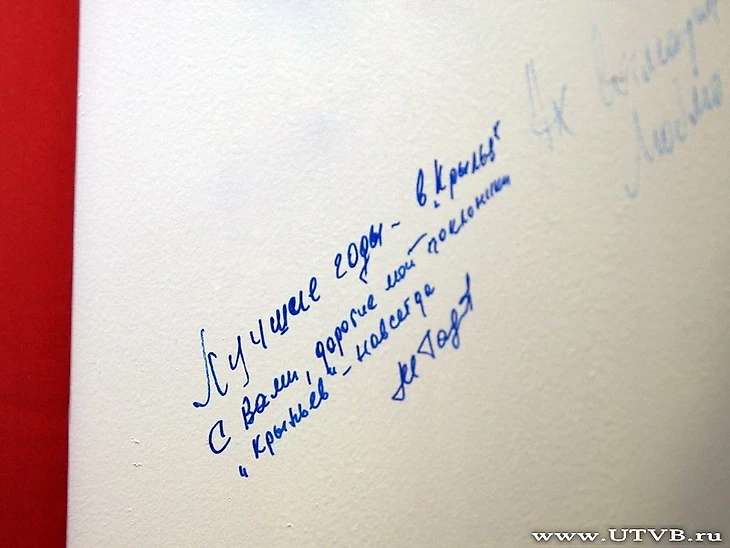 Лучшие годы – в „Крылья“
С Вами, дорогие мои поклонники
„Крыльев“ – навсегда
Ах
Люблю
www.UTVB.ru